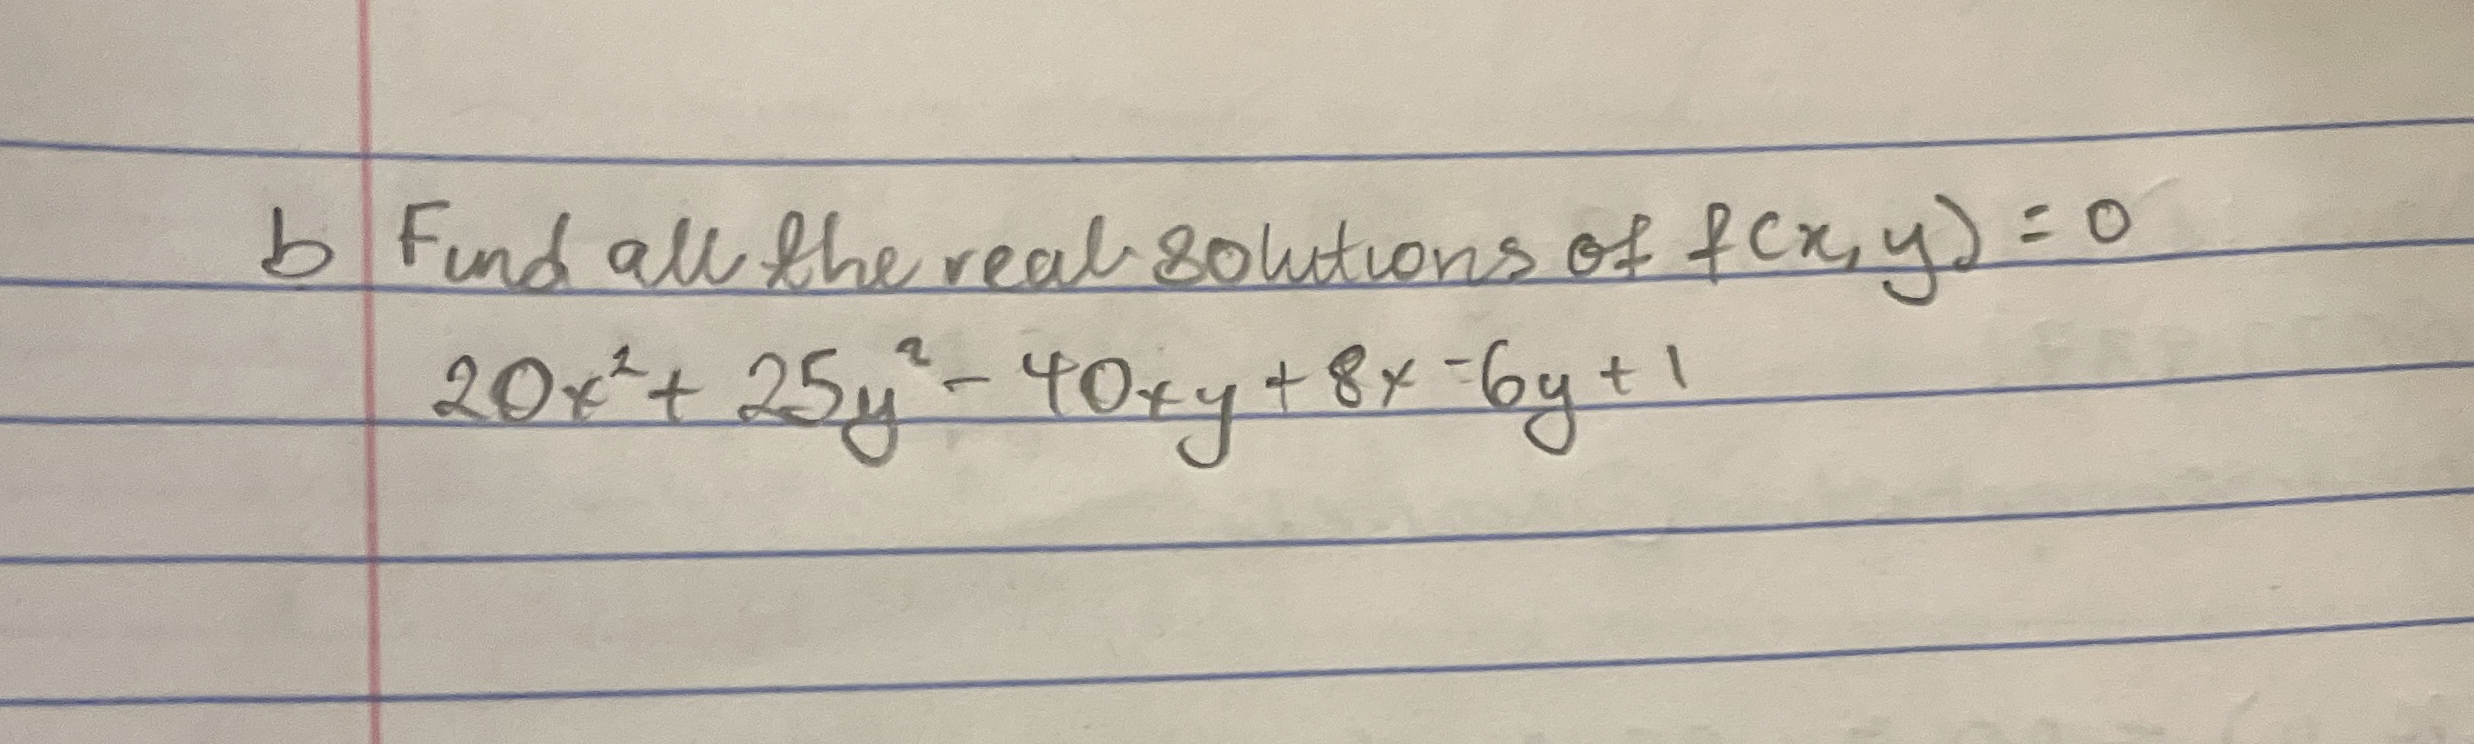 b Find all the real solutions of f(x, y) = 0
20x² + 25y² - 40xy + 8x - 6y + 1